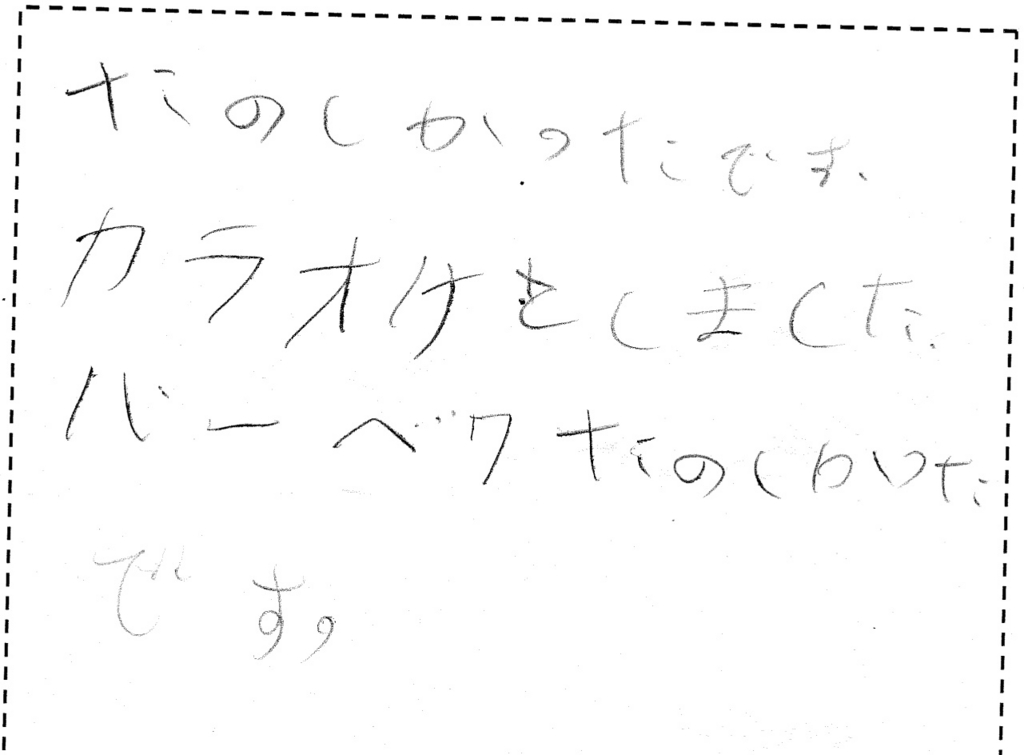 たのしかったです。
カラオケをしました。
バーベクたのしかった
です。